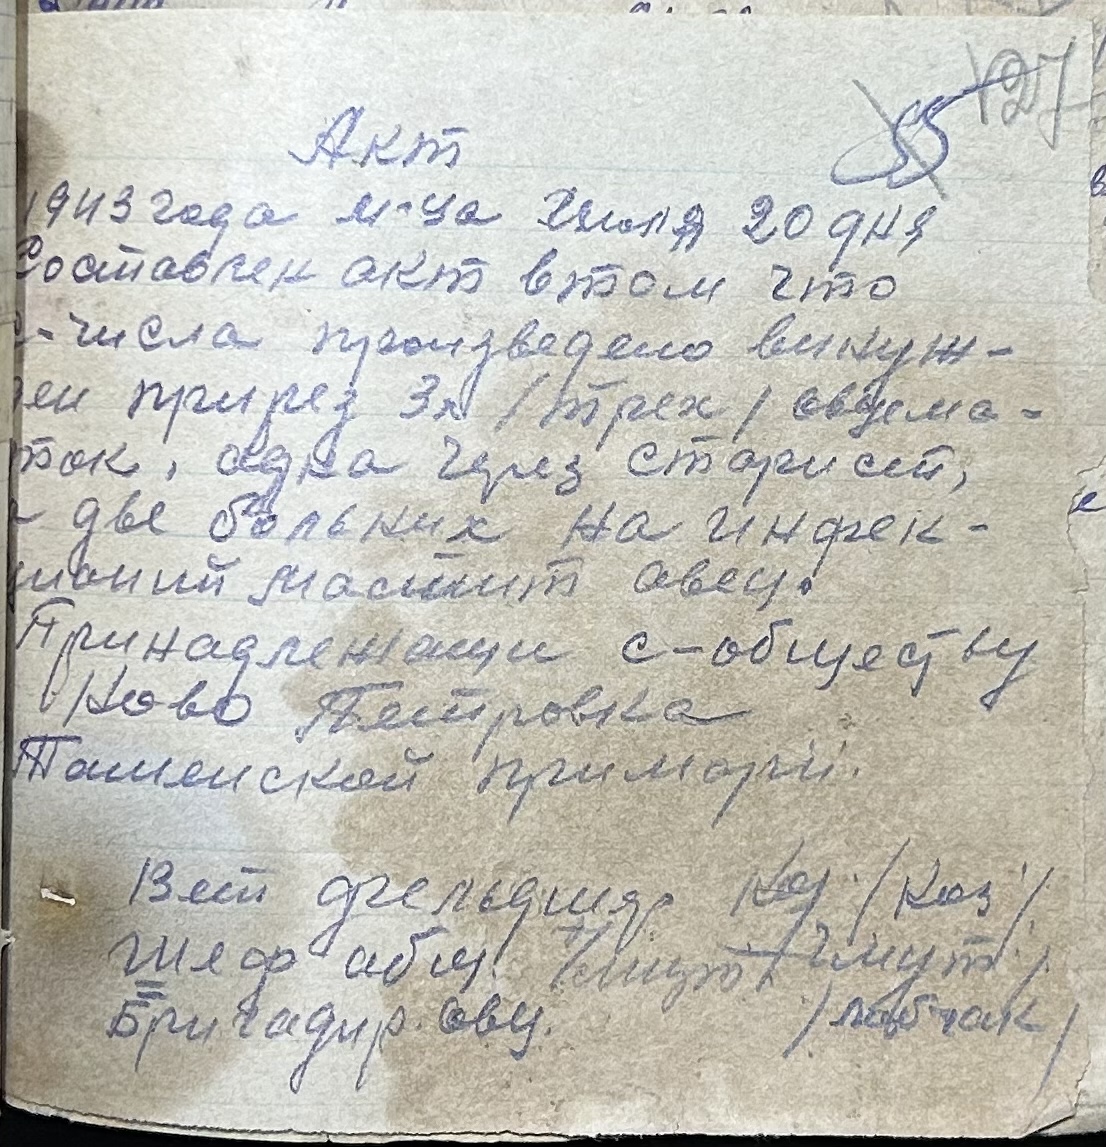 127
55
Акт
1943 года м-ца Июля 20 дня
Составлен акт втом что
с-числа произведено винуж-
ден прирез 3х /трех/ овцема-
ток, адна через старист,
а две больних на инфек-
ционий мастит авец.
Принадлежащи с-обществу
Ново Петровка
Ташенской примаріі.
Вет фельдшяр Коз /Коз/
Шеф абщ. Чмут /Чмут/
Бригадир. овц. /лабчак/